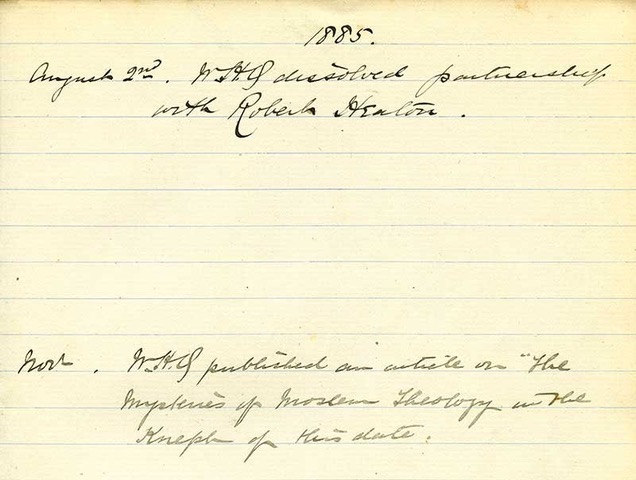 1885.
August 2nd. W.H.Q dissolved partnership
with Robert Heaton.
Novr. W.H.Q published an article on "The
Mysteries of Moslem Theology in the
Kneph of this date.